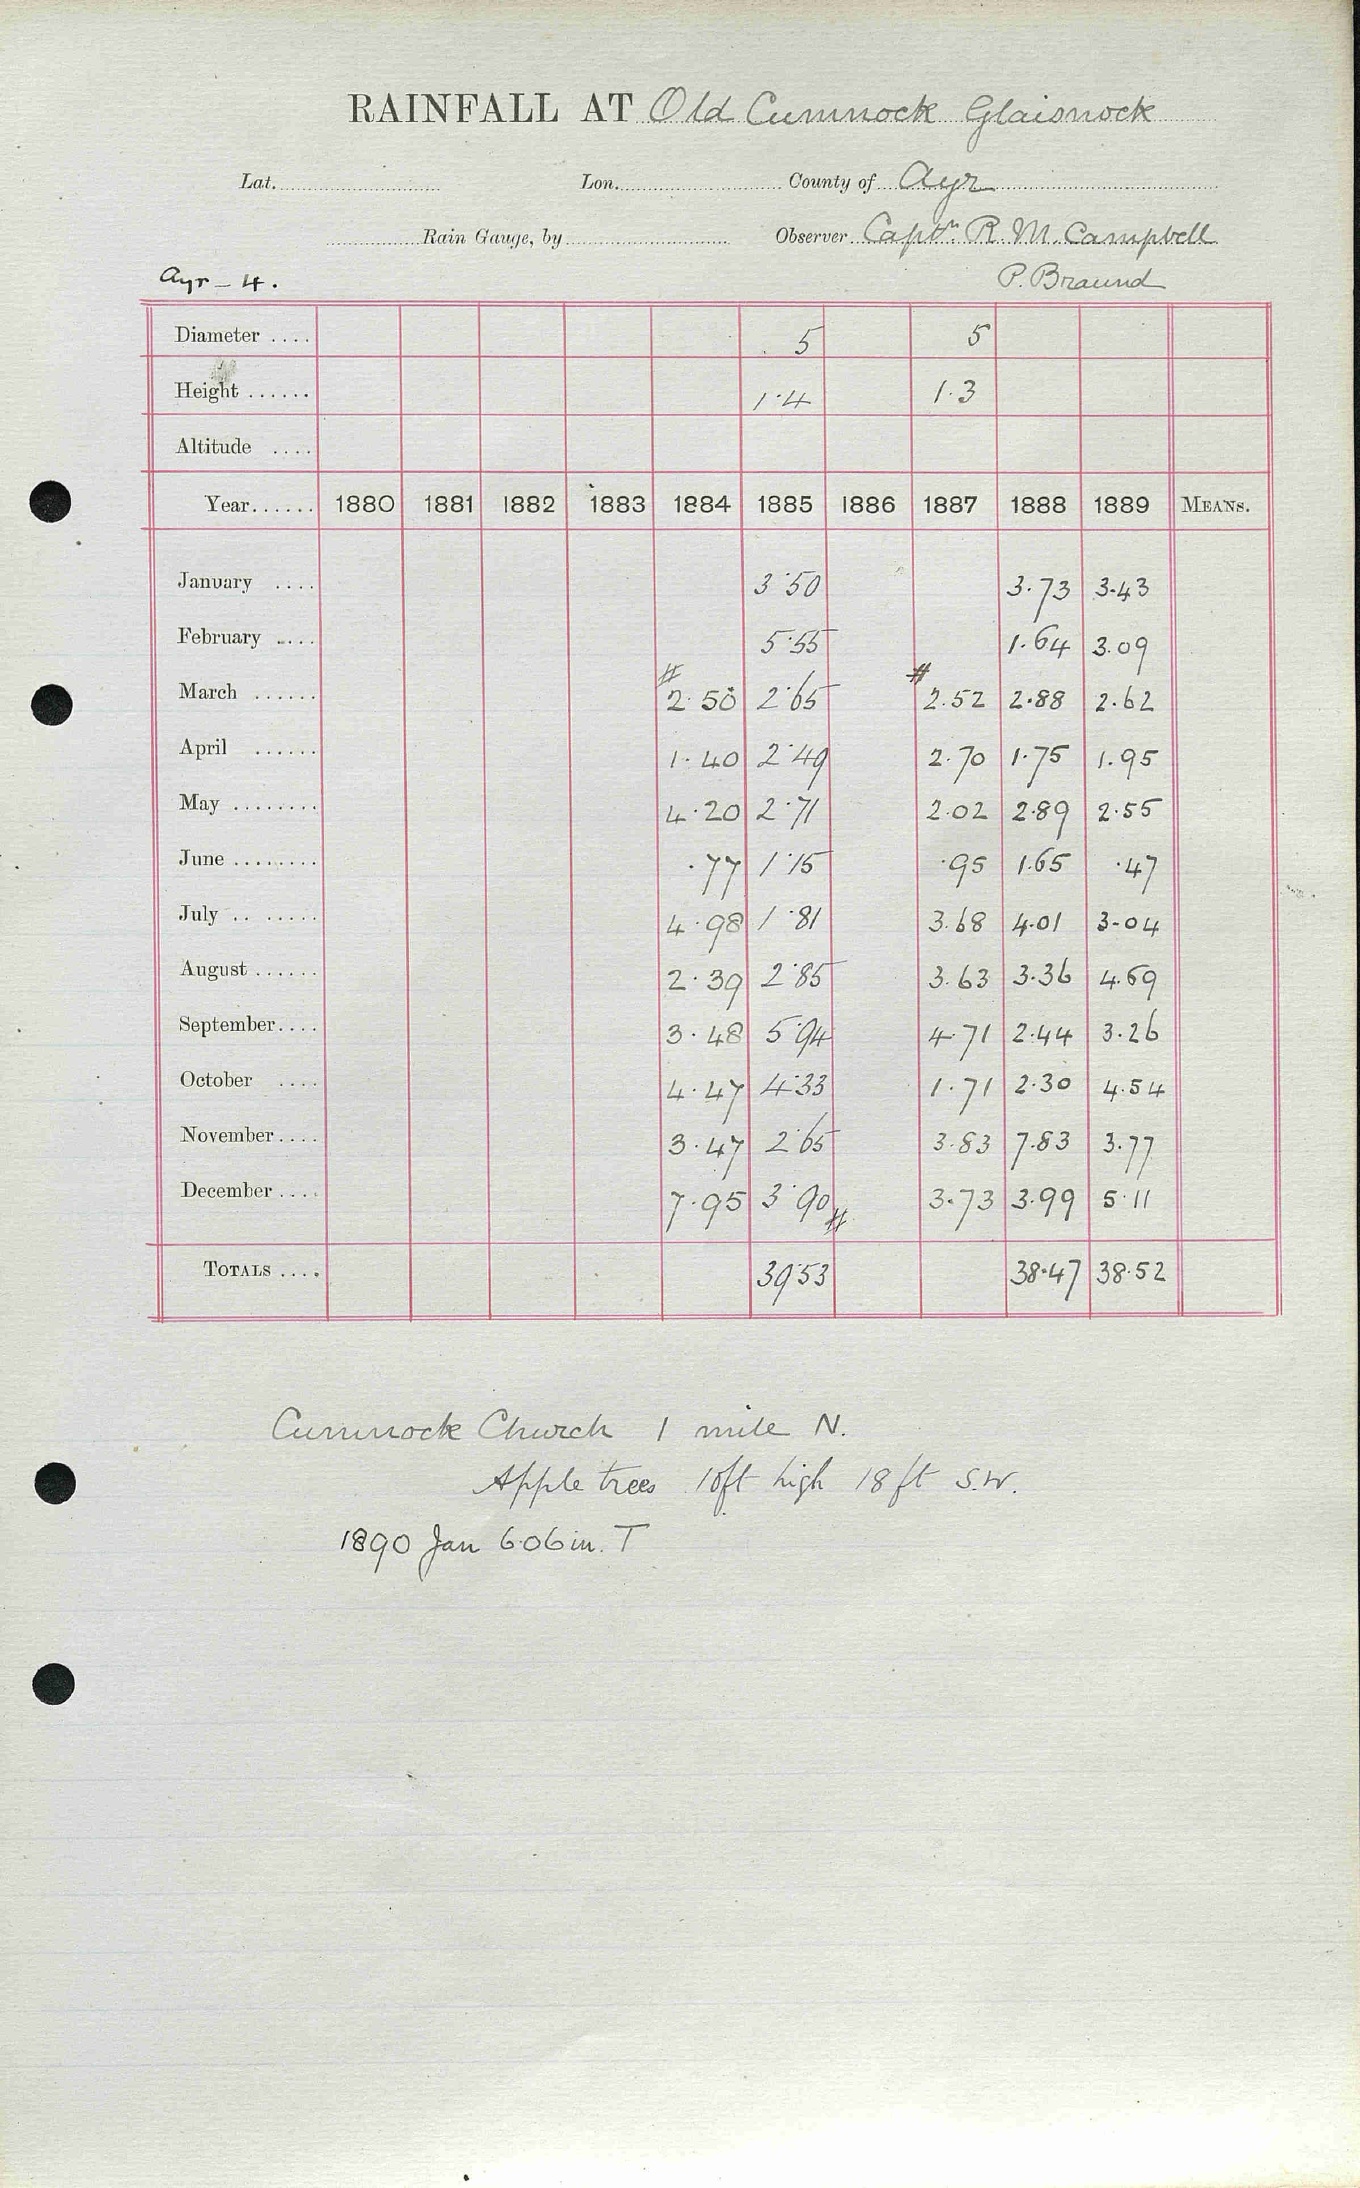 RAINFALL AT Old Cumnock Glaisnock
Lat. Lon. County of Ayr
Rain Gauge, by Observer Captn. R. M. Campbell
Ayr - 4. P. Braund
Diameter .... 5 5
Height ...... 1.4 1.3
Altitude ....
Year...... 1880 1881 1882 1883 1884 1885 1886 1887 1888 1889 MEANS.
January .... 3.50 3.73 3.43
February .... 5.55 1.64 3.09
# #
March ...... 2.50 2.65 2.52 2.88 2.62
April ...... 1.40 2.49 2.70 1.75 1.95
May ........ 4.20 2.71 2.02 2.89 2.55
June ........ .77 1.15 .95 1.65 .47
July .. ..... 4.98 1.81 3.68 4.01 3.04
August ...... 2.39 2.85 3.63 3.36 4.69
September.... 3.48 5.94 4.71 2.44 3.26
October .... 4.47 4.33 1.71 2.30 4.54
November.... 3.47 2.65 3.83 7.83 3.77
December .... 7.95 3.90 # 3.73 3.99 5.11
TOTALS .... 39.53 38.47 38.52
Cumnock Church 1 mile N.
Apple trees 10ft high 18ft S.W.
1890 Jan 6.06 in. T